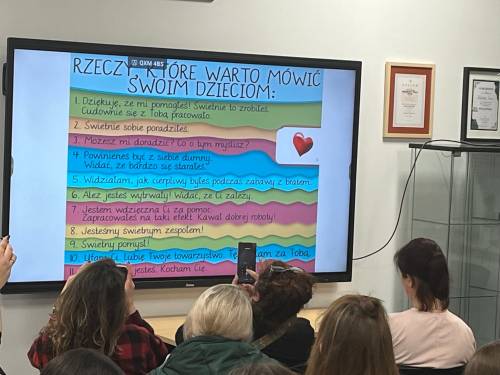 QXM 485
RZECZY, KTÓRE WARTO MÓWIĆ
SWOIM DZIECIOM:
1. Dziękuję, że mi pomogłeś! Świetnie to zrobiłeś.
Cudownie się z Tobą pracowało.
2. Świetnie sobie poradziłeś.
3. Możesz mi doradzić? Co o tym myślisz?
4. Powinieneś być z siebie dumny.
Widać, że bardzo się starałeś.
5. Widziałam, jak cierpliwy byłeś podczas zabawy z bratem.
6. Ależ jesteś wytrwały! Widać, że Ci zależy.
7. Jestem wdzięczna Ci za pomoc.
Zapracowałeś na taki efekt. Kawał dobrej roboty!
8. Jesteśmy świetnym zespołem!
9. Świetny pomysł!
10. Lubię Twoje towarzystwo. za Tobą.
11. jesteś. Kocham Cię.